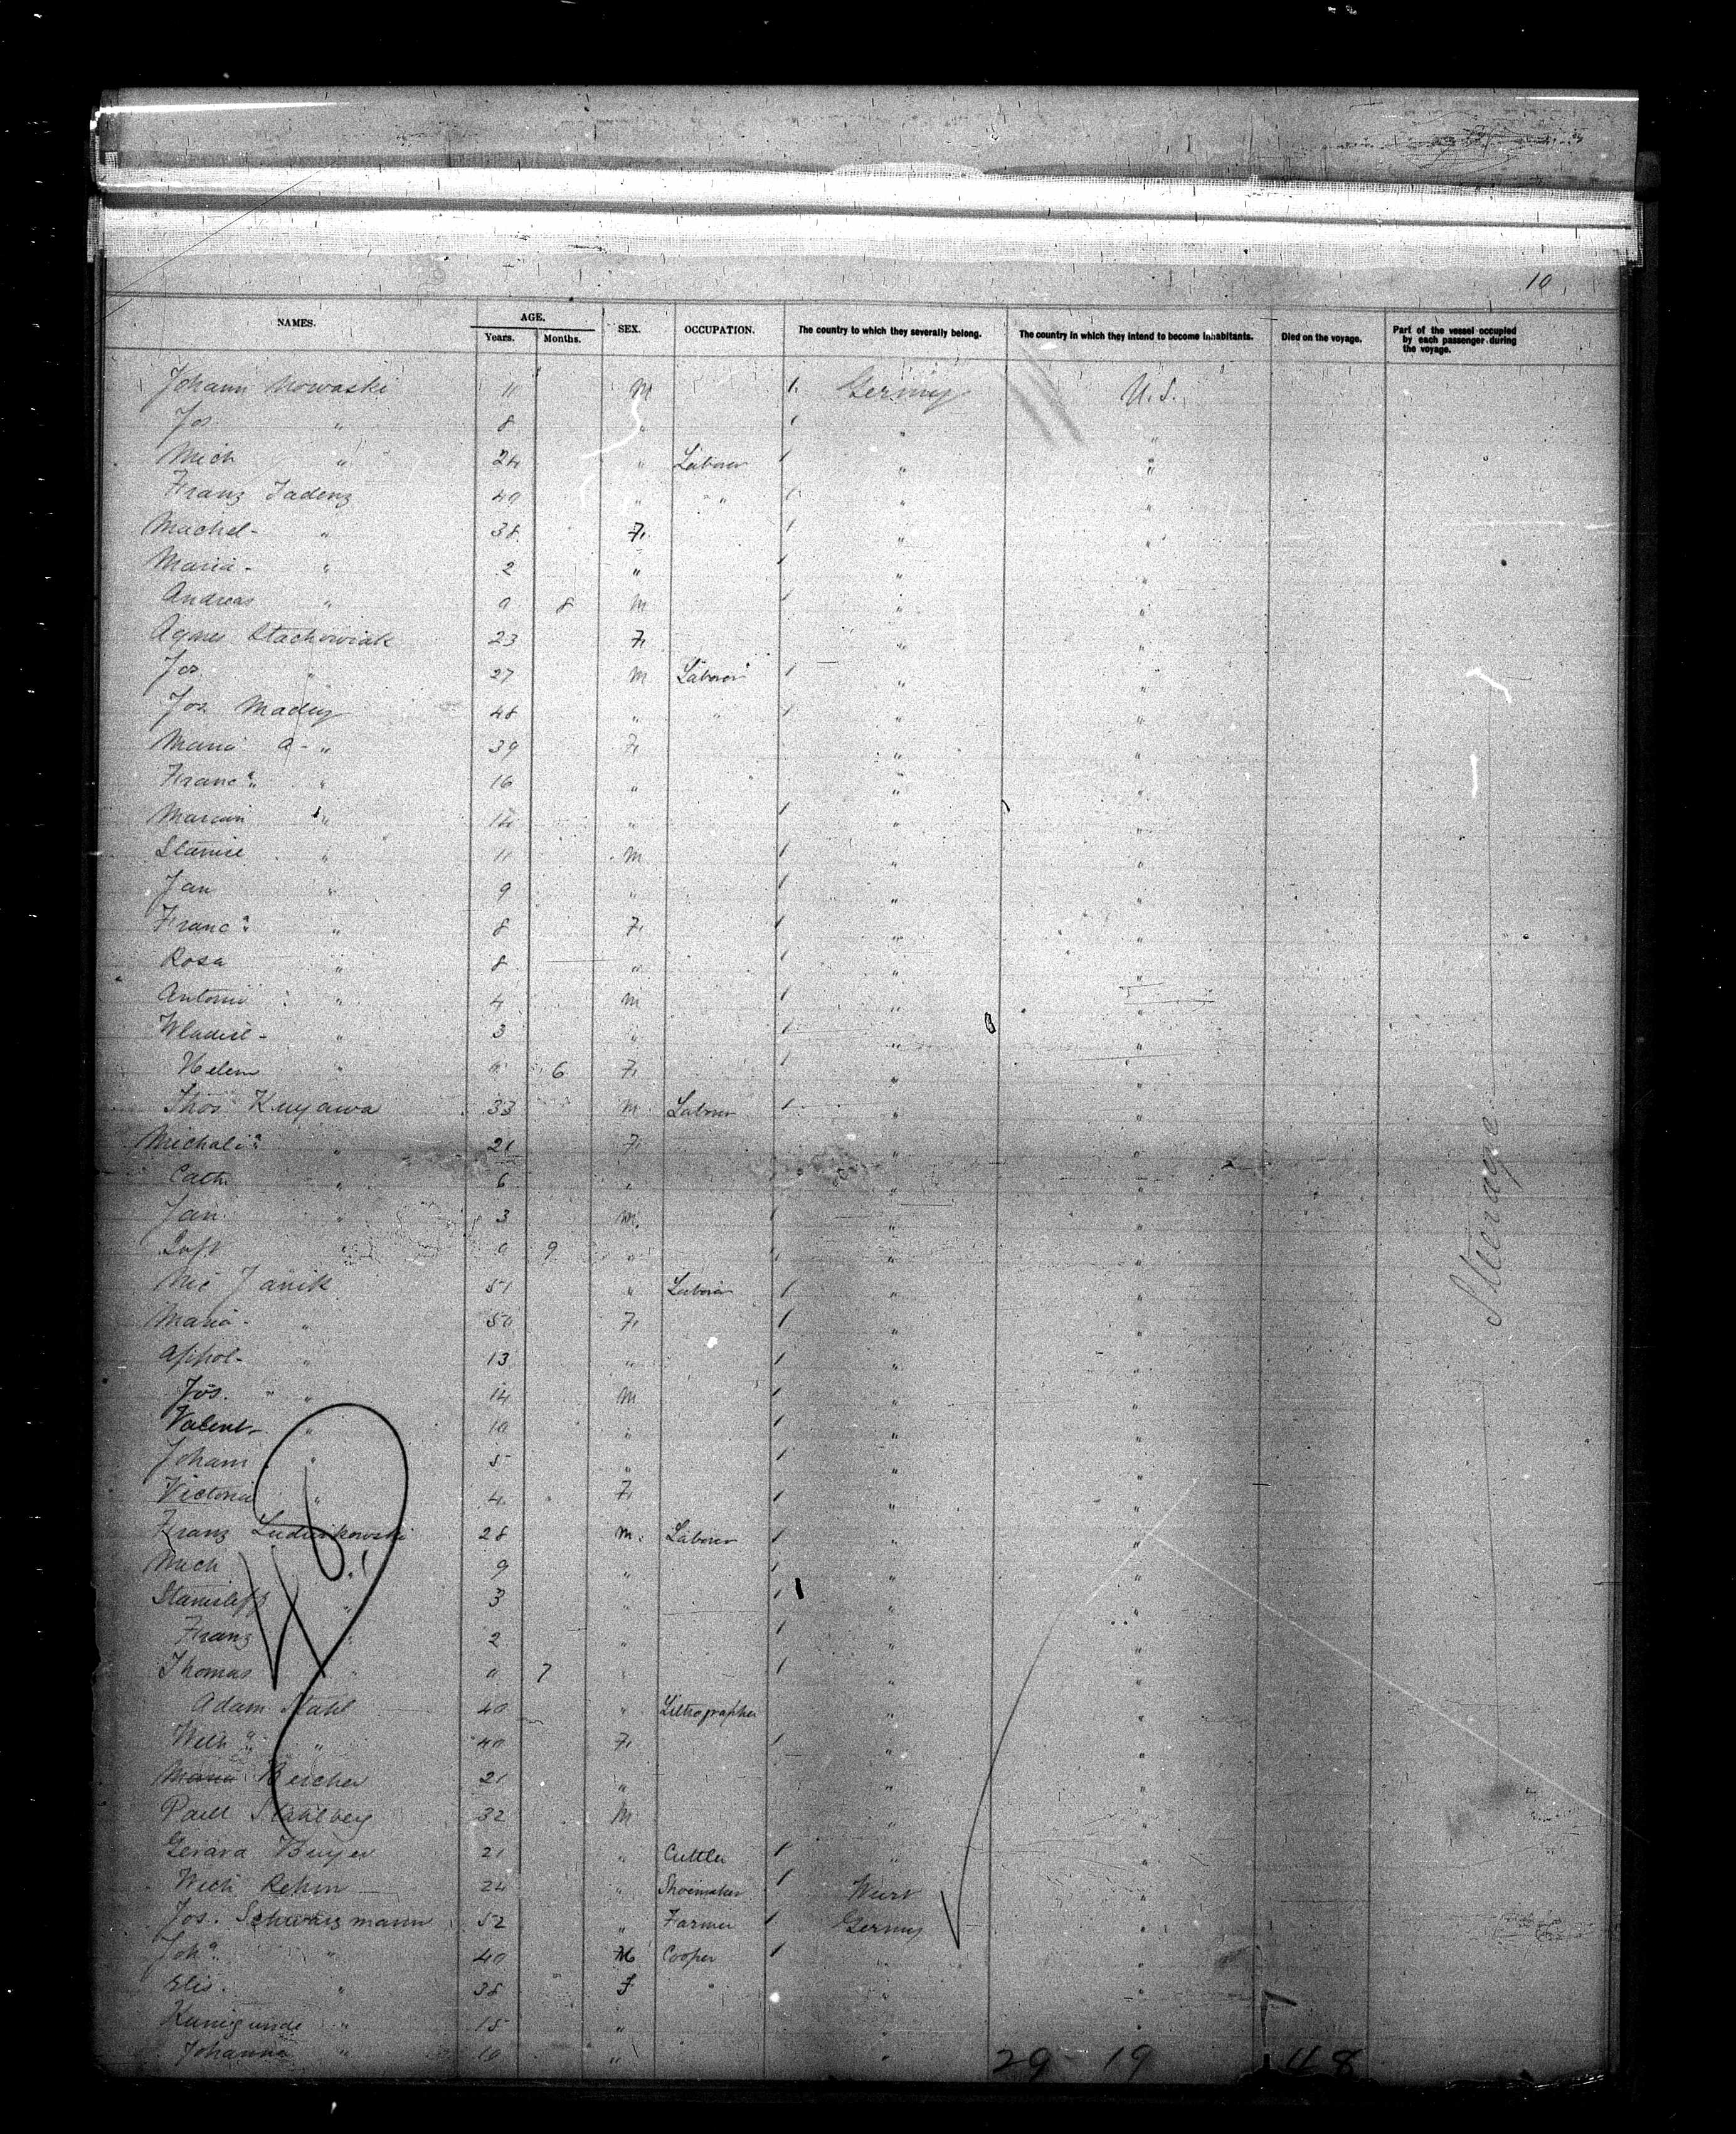 10
NAMES. AGE. Years. Months. SEX. OCCUPATION. The country to which they severally belong. The country in which they intend to become inhabitants. Died on the voyage. Part of the vessel occupied by each passenger during the voyage.
Johann Nowaski 11 M 1 Germy U.S.
Jos. " 8 " 1 " "
Mich " 24 " Laborer 1 " "
Franz Jadenz 40 " " 1 " "
Machel- " 38 F. 1 " "
Maria- " 2 " 1 " "
Andreas " 0 8 M 1 " "
Agnes Stachowiak 23 F. " "
Jos. " 27 M Laborer 1 " "
Jos Madey 48 " " 1 " "
Maria a- " 39 F. " "
Franca " 16 " " "
Marian " 14 " 1 " "
Stanisl " 11 M 1 " "
Jan " 9 " 1 " "
Franca " 8 F. 1 " "
Rosa " 8 " 1 " "
Antoni " 4 M 1 " "
Wladisl- " 3 " 1 " "
Helen " 6 F. 1 " "
Thos Kuyawa 33 M Laborer 1 " "
Michalia " 21 F. " "
Cath. " 6 " " "
Jan " 3 M. " "
" 0 9 " " "
Mic Janik 51 " Laborer 1 " "
Maria- " 50 F. 1 " "
Appol- " 13 " 1 " "
Jos. " 14 M 1 " "
Valent- " 10 " 1 " "
Johann " 5 " 1 " "
Victoria " 4 F. 1 " "
Franz Luduikowski 28 M. Laborer 1 " "
Mich " 9 " 1 " "
Stanislaff " 3 " 1 " "
Franz " 2 " 1 " "
Thomas " 0 7 " 1 " "
Adam Stahl 40 " Lithographer " "
Wilha " 40 F. 1 " "
Maria Bercher 21 " " "
Paul Stahlberg 32 M " "
Gerard Buyer 21 " Cuttler 1 " "
Mich Rehm 24 " Shoemaker 1 Wurt "
Jos. Schwarzmann 52 " Farmer 1 Germy "
Joha " 40 M Cooper 1 " "
Elis. " 38 f " " "
Kunigunde " 15 " " "
Johanna " 10 " "
Steerage
29 19 48